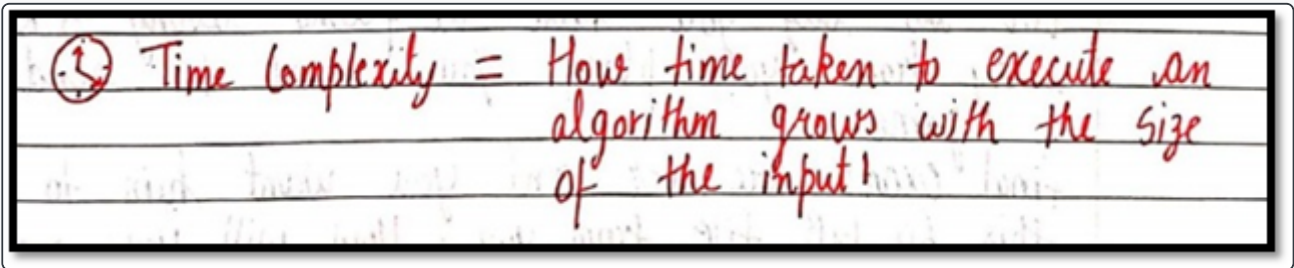 Time Complexity = How time taken to execute an
algorithm grows with the size
of the input!